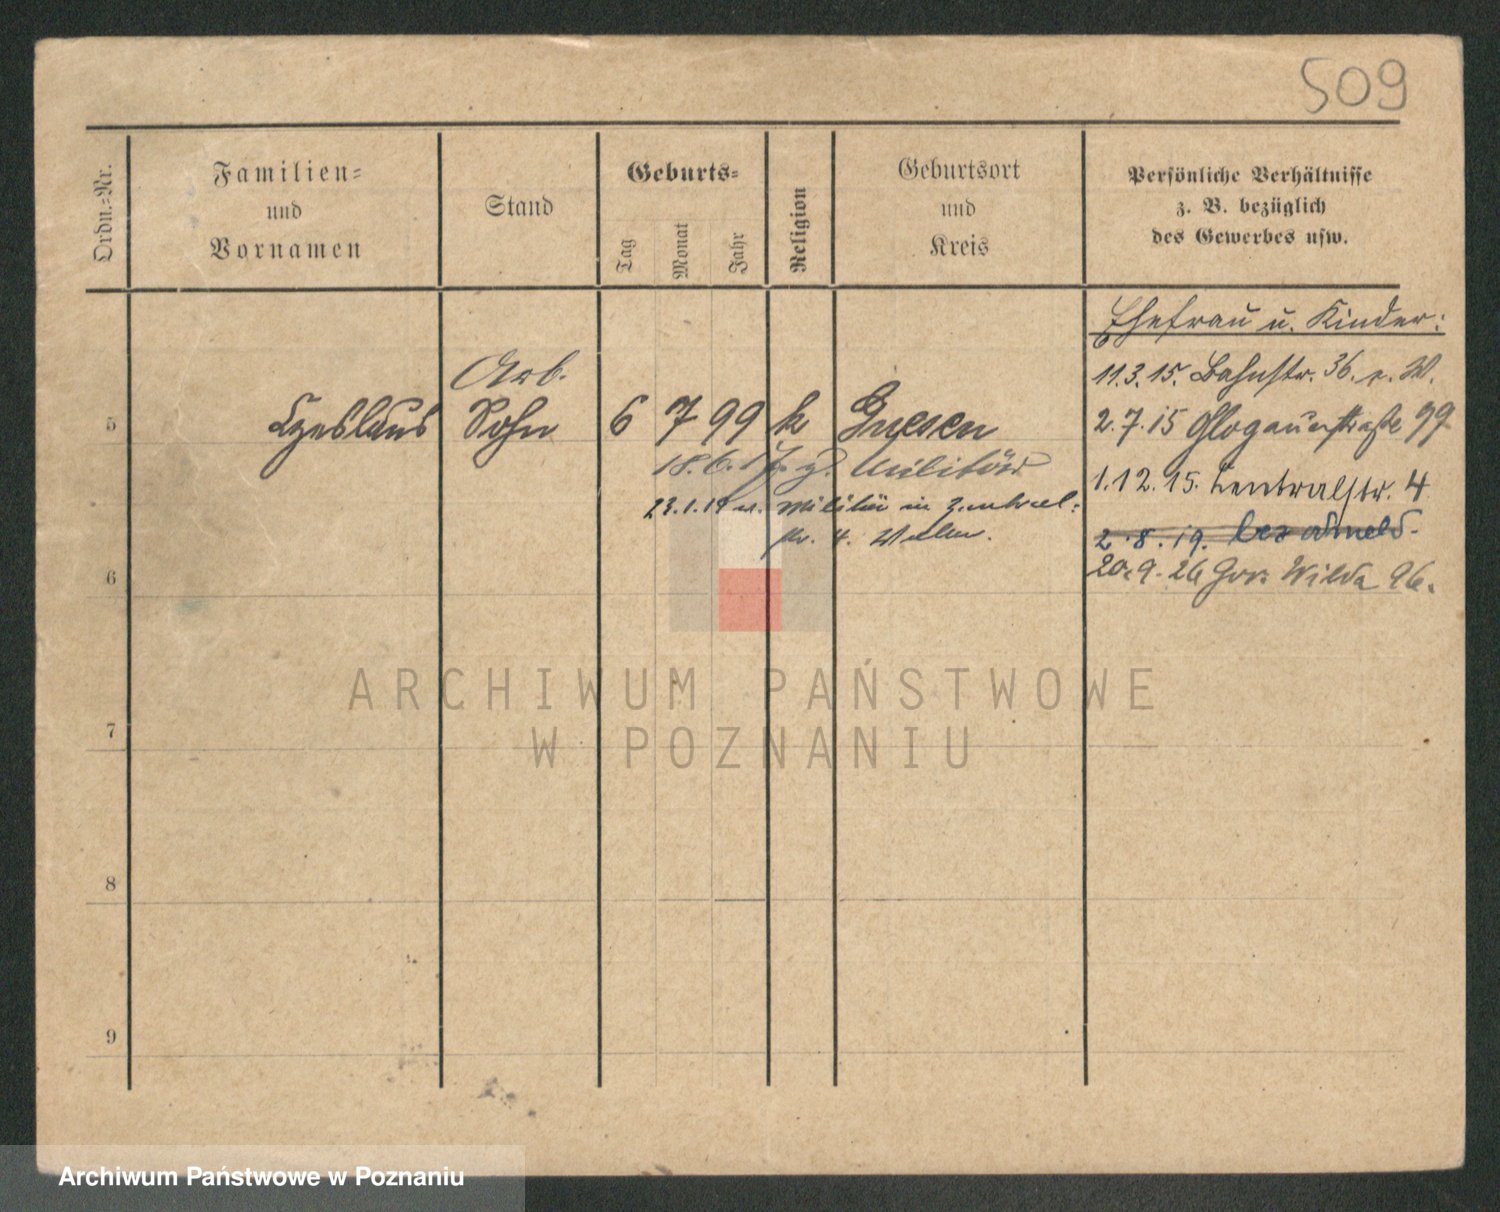 509
Ordn.-Nr.
Familien-
und
Vornamen
Stand
Geburts-
Tag
Monat
Jahr
Religion
Geburtsort
und
Kreis
Persönliche Verhältnisse
z. B. bezüglich
des Gewerbes usw.
Ehefrau u. Kinder:
11.3.15. Bahnstr. 36. W.
2.7.15 Glogauerstraße 99
1.12.15. Centralstr. 4
2.8.19.
20.9.26 Gór. Wilda 96.
Arb.
5 Czeslaus Sohn 6 7 99 k Gnesen
18.6.17. z. Militär
23.1.19 v. Militär in Zentral-
str. 4.
6
7
8
9
ARCHIWUM PAŃSTWOWE
W POZNANIU
Archiwum Państwowe w Poznaniu